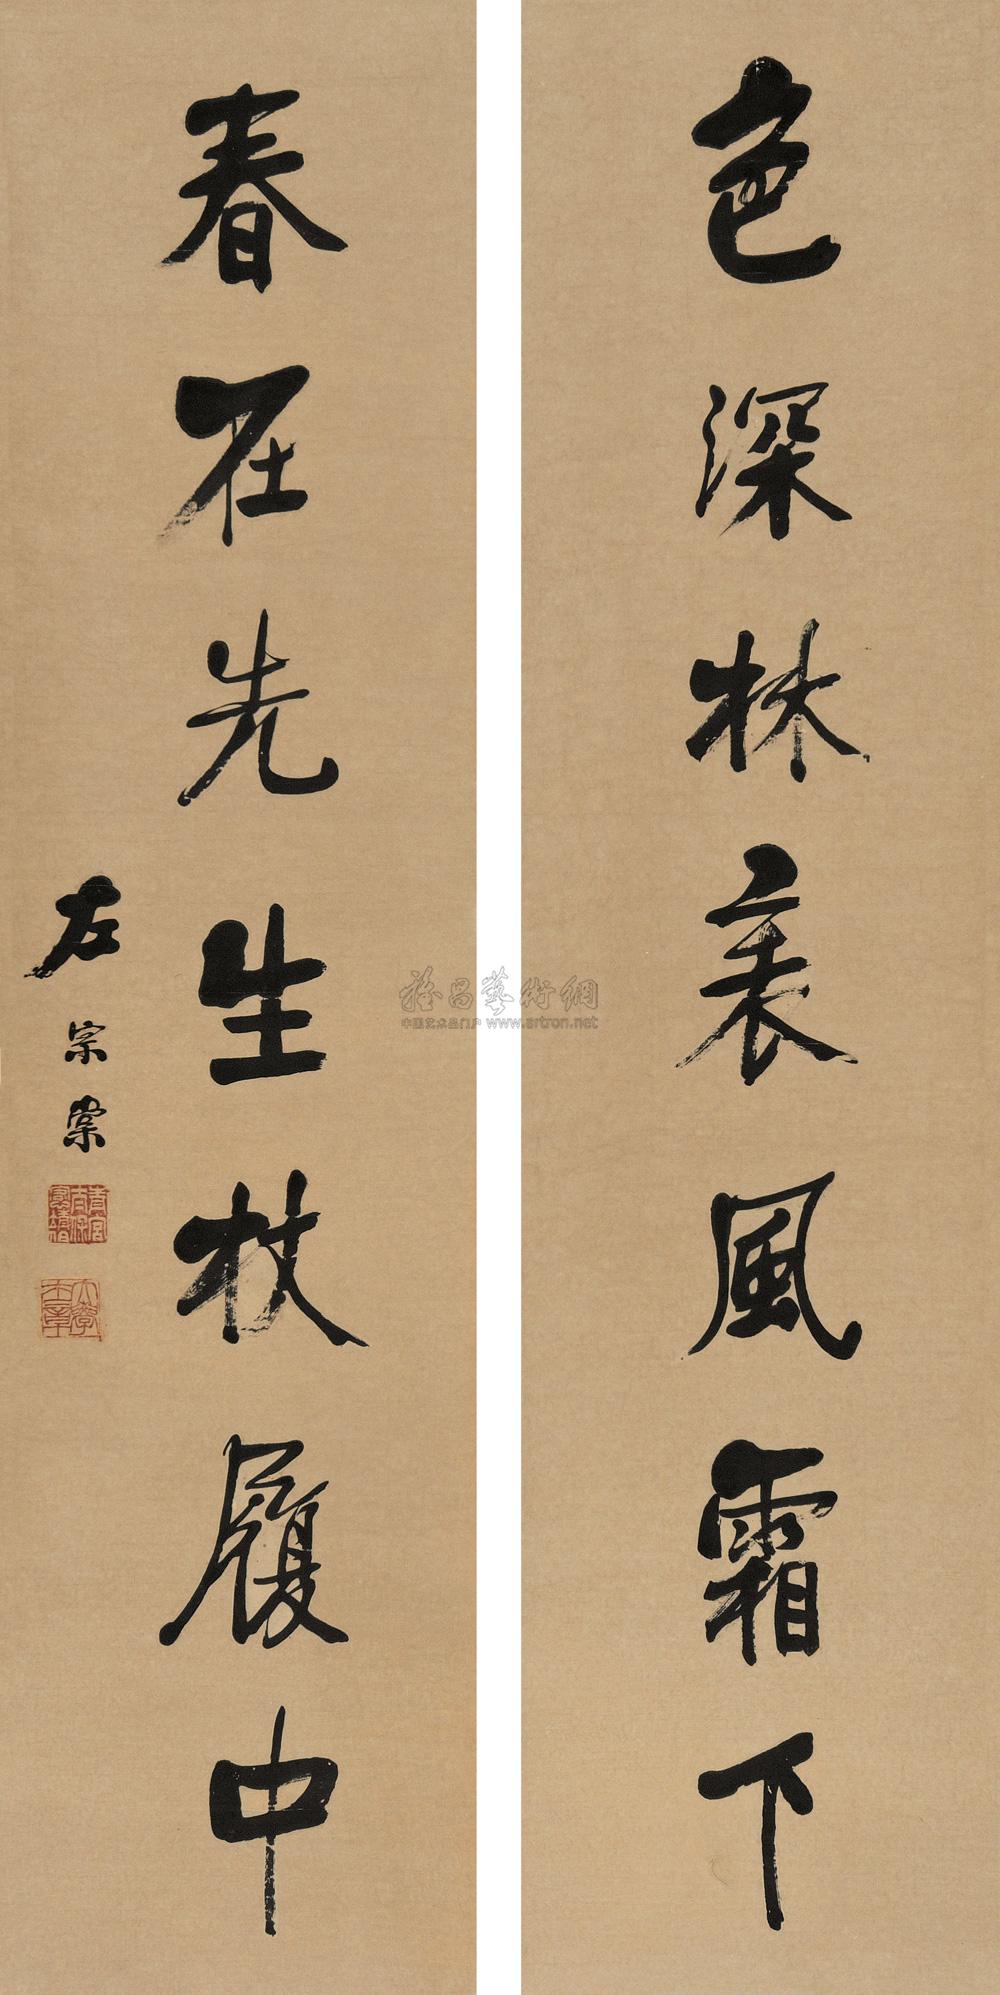 色深林表風霜下
春在先生杖履中
左宗棠
大學士章
雅昌藝術網
中国艺术品门户 www.artron.net